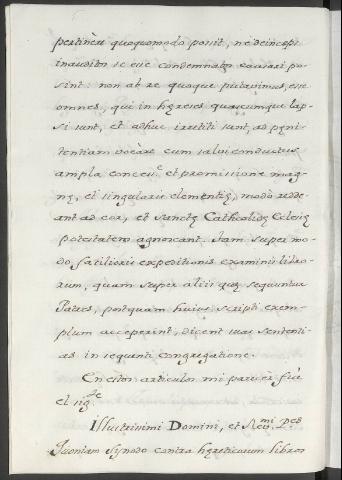 pertinere quoquomodo possit, ne deinceps
inauditos se esse condemnatos causari po-
sint: non ab re quoque putavimus, esse
omnes, qui in hęreses quascumque lap-
si sunt, et adhuc irretiti sunt, ad pęni-
tentiam vocare cum salvi conductus
ampla concess.e et promissione mag-
nę, et singularis clementię, modo redde-
ant ad cor, et Sanctę Catholicę Eclesię
potestatem agnoscant. Jam super mo-
do facilioris expeditionis examinis libro-
rum, quam super aliis quę sequuntur
Patres, postquam huius scripti exem-
plum acceperint, dicent suas sententi-
as in sequanti Congregatione.
En estos articulos mi parecer fue
el sig.te
Illustrisimi Domini, et Rev.mi P.es
Quoniam Synodo contra hęreticorum libros